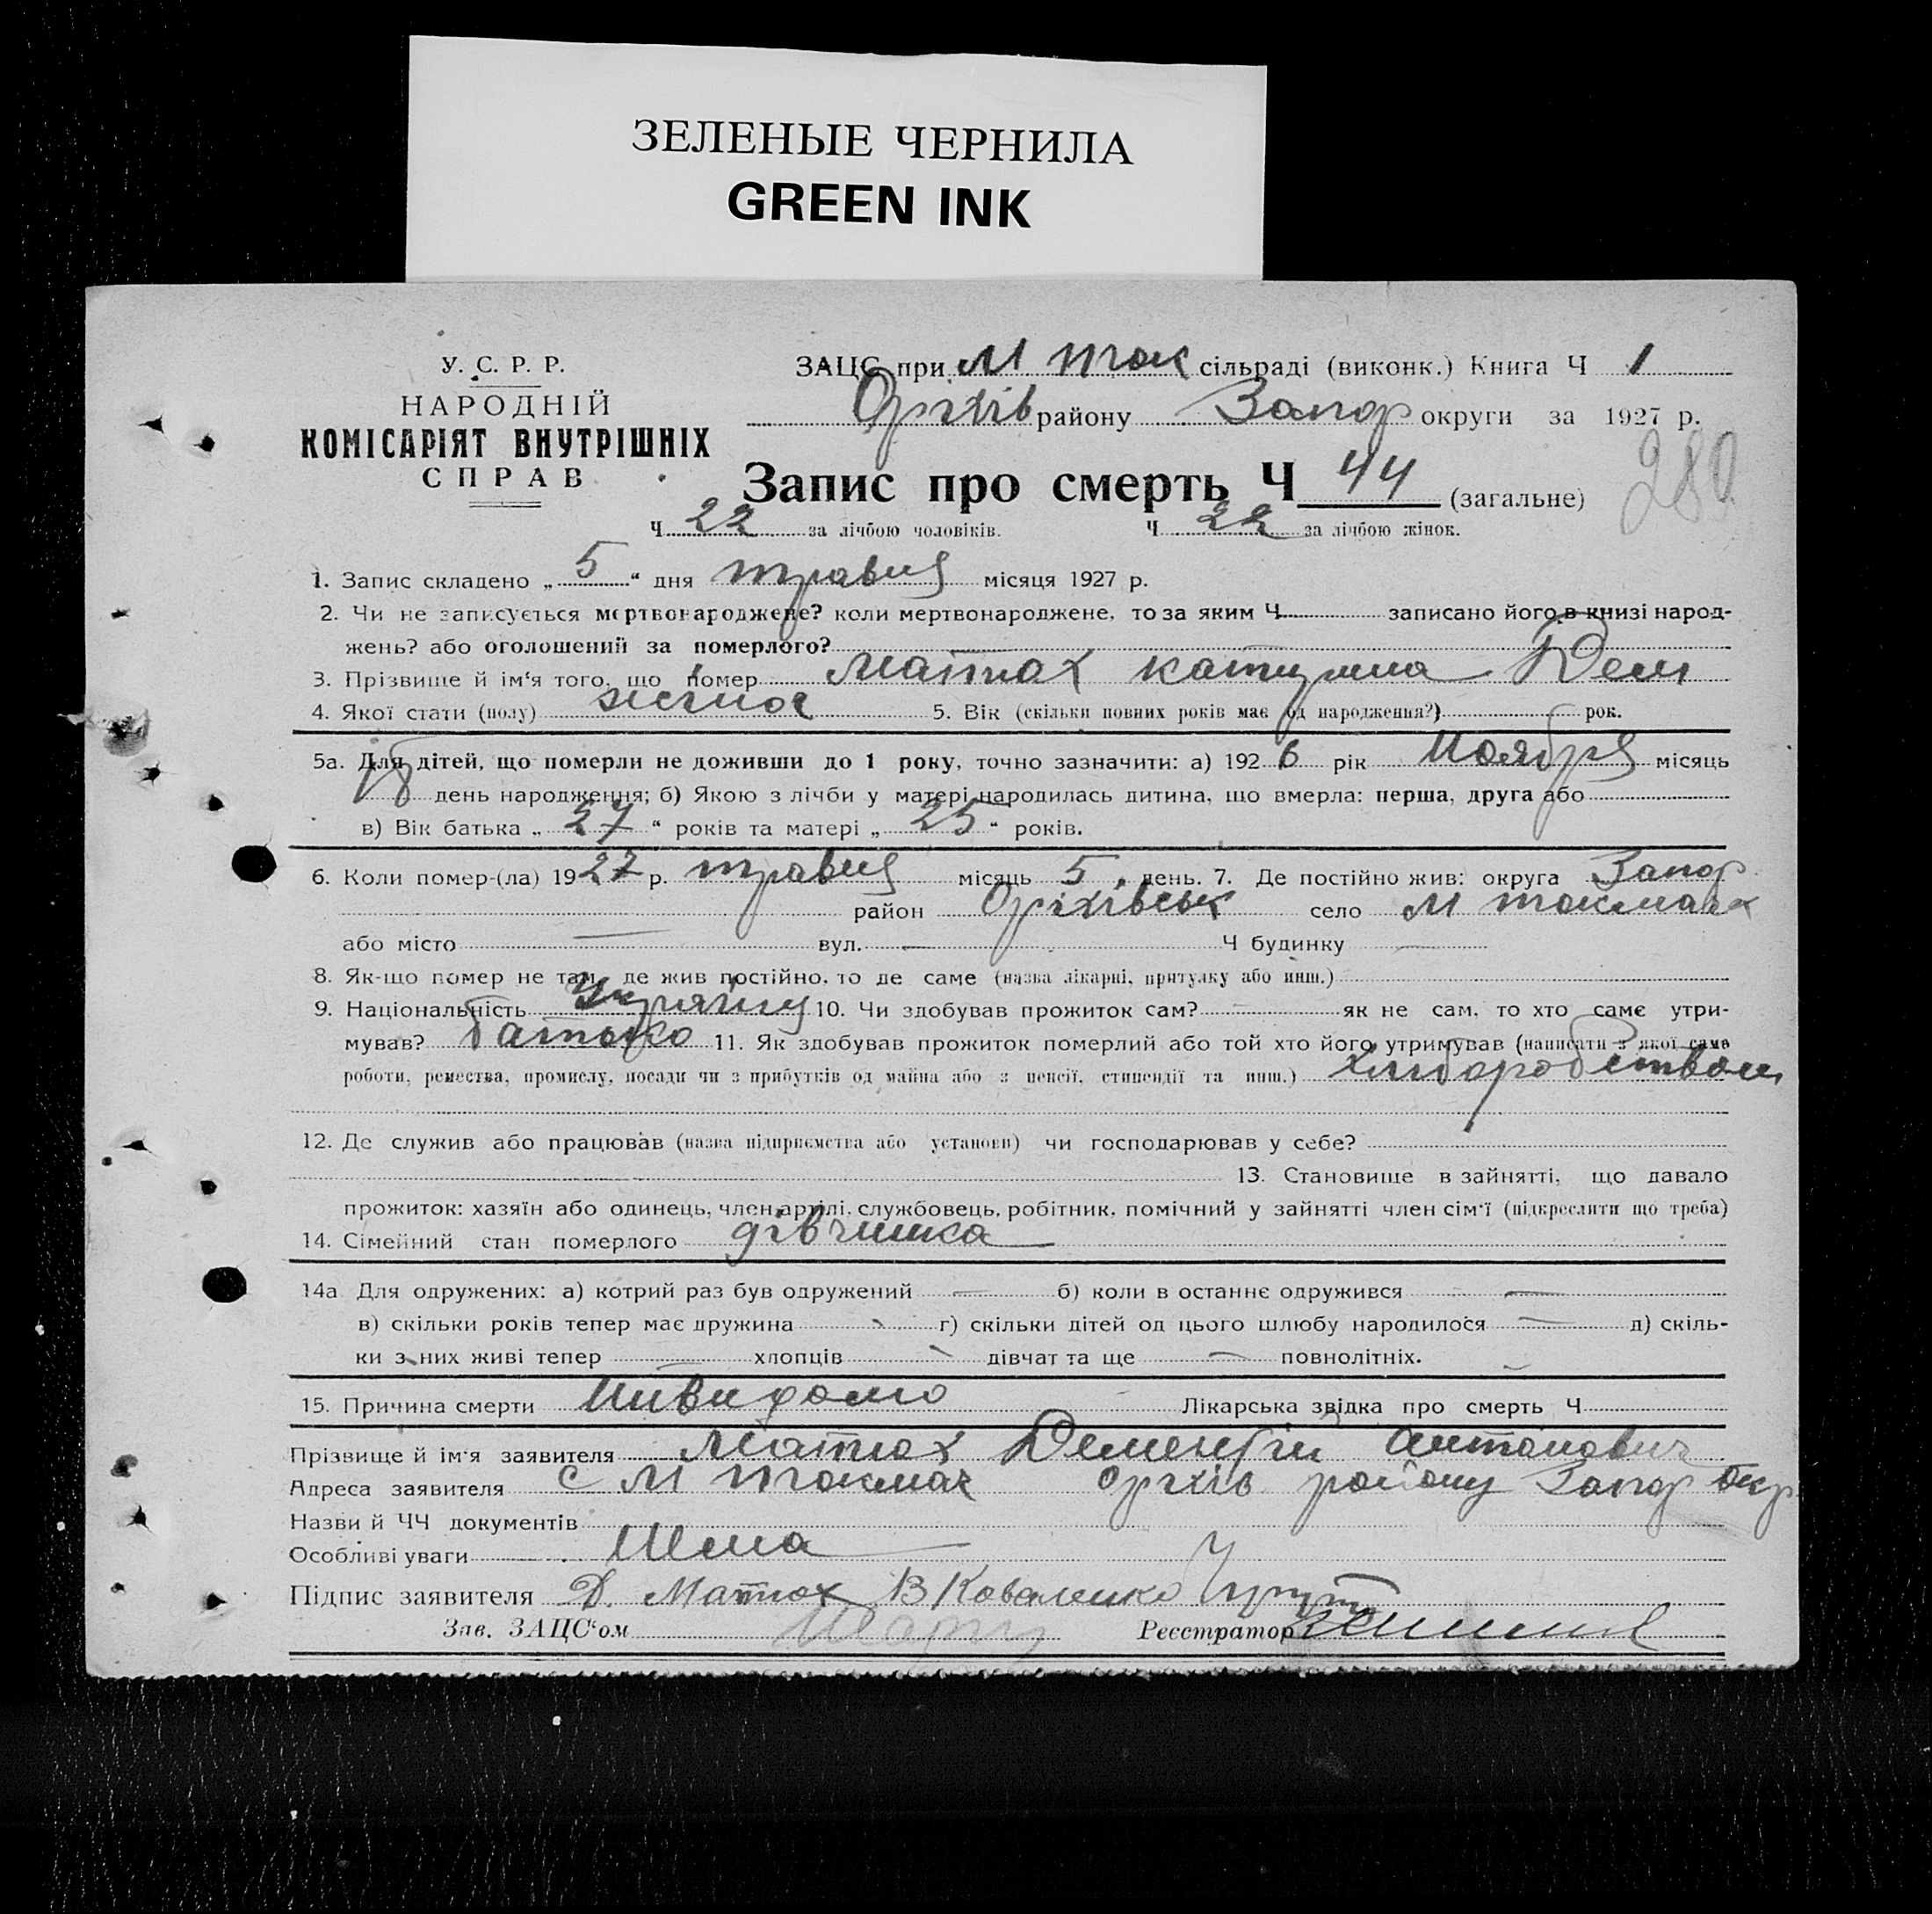 ЗЕЛЕНЫЕ ЧЕРНИЛА
GREEN INK
У. С. Р. Р.
НАРОДНІЙ
КОМІСАРІЯТ ВНУТРІШНІХ
СПРАВ
ЗАЦС при М Ток сільраді (виконк.) Книга Ч 1
Оріхів району Запор округи за 1927 р.
280
Запис про смерть Ч 44 (загальне)
Ч 22 за лічбою чоловіків. Ч 22 за лічбою жінок.
1. Запис складено „ 5 “ дня травня місяця 1927 р.
2. Чи не записується мертвонароджене? коли мертвонароджене, то за яким Ч записано його в книзі народ-
жень? або оголошений за померлого?
3. Прізвище й ім‘я того, що помер Матюх Дем
4. Якої стати (полу) 5. Вік (скільки повних років має од народження?) рок.
5а. Для дітей, що померли не доживши до 1 року, точно зазначити: а) 192 6 рік Ноября місяць
день народження; б) Якою з лічби у матері народилась дитина, що вмерла: перша, друга або
в) Вік батька „ 27 “ років та матері „ 25 “ років.
6. Коли помер-(ла) 19 27 р. травня місяць 5 день. 7. Де постійно жив: округа Запор
район Оріхівськ село М Токмак
або місто — вул. — Ч будинку —
8. Як-що помер не там, де жив постійно, то де саме (назва лікарні, притулку або инш.)
9. Національність 10. Чи здобував прожиток сам? — як не сам, то хто саме утри-
мував? батько 11. Як здобував прожиток померлий або той хто його утримував (написати з якої саме
роботи, ремества, промислу, посади чи з прибутків од майна або з пенсії, стипендії та инш.) хлиборобством
12. Де служив або працював (назва підприємства або установи) чи господарював у себе?
13. Становище в зайнятті, що давало
прожиток: хазяїн або одинець, член артілі, службовець, робітник, помічний у зайнятті член сім‘ї (підкреслити що треба)
14. Сімейний стан померлого дівчинка
14а Для одружених: а) котрий раз був одружений — б) коли в останнє одружився —
в) скільки років тепер має дружина — г) скільки дітей од цього шлюбу народилося — д) скіль-
ки з них живі тепер — хлопців — дівчат та ще — повнолітніх.
15. Причина смерти Нивидомо Лікарська звідка про смерть Ч
Прізвище й ім‘я заявителя Матюх Дементій Антонович
Адреса заявителя с М Токмак Оріхів району Запор Окр
Назви й ЧЧ документів
Особливі уваги Нема
Підпис заявителя Д. Матюх В Коваленко
Зав. ЗАЦС‘ом
Реєстратор